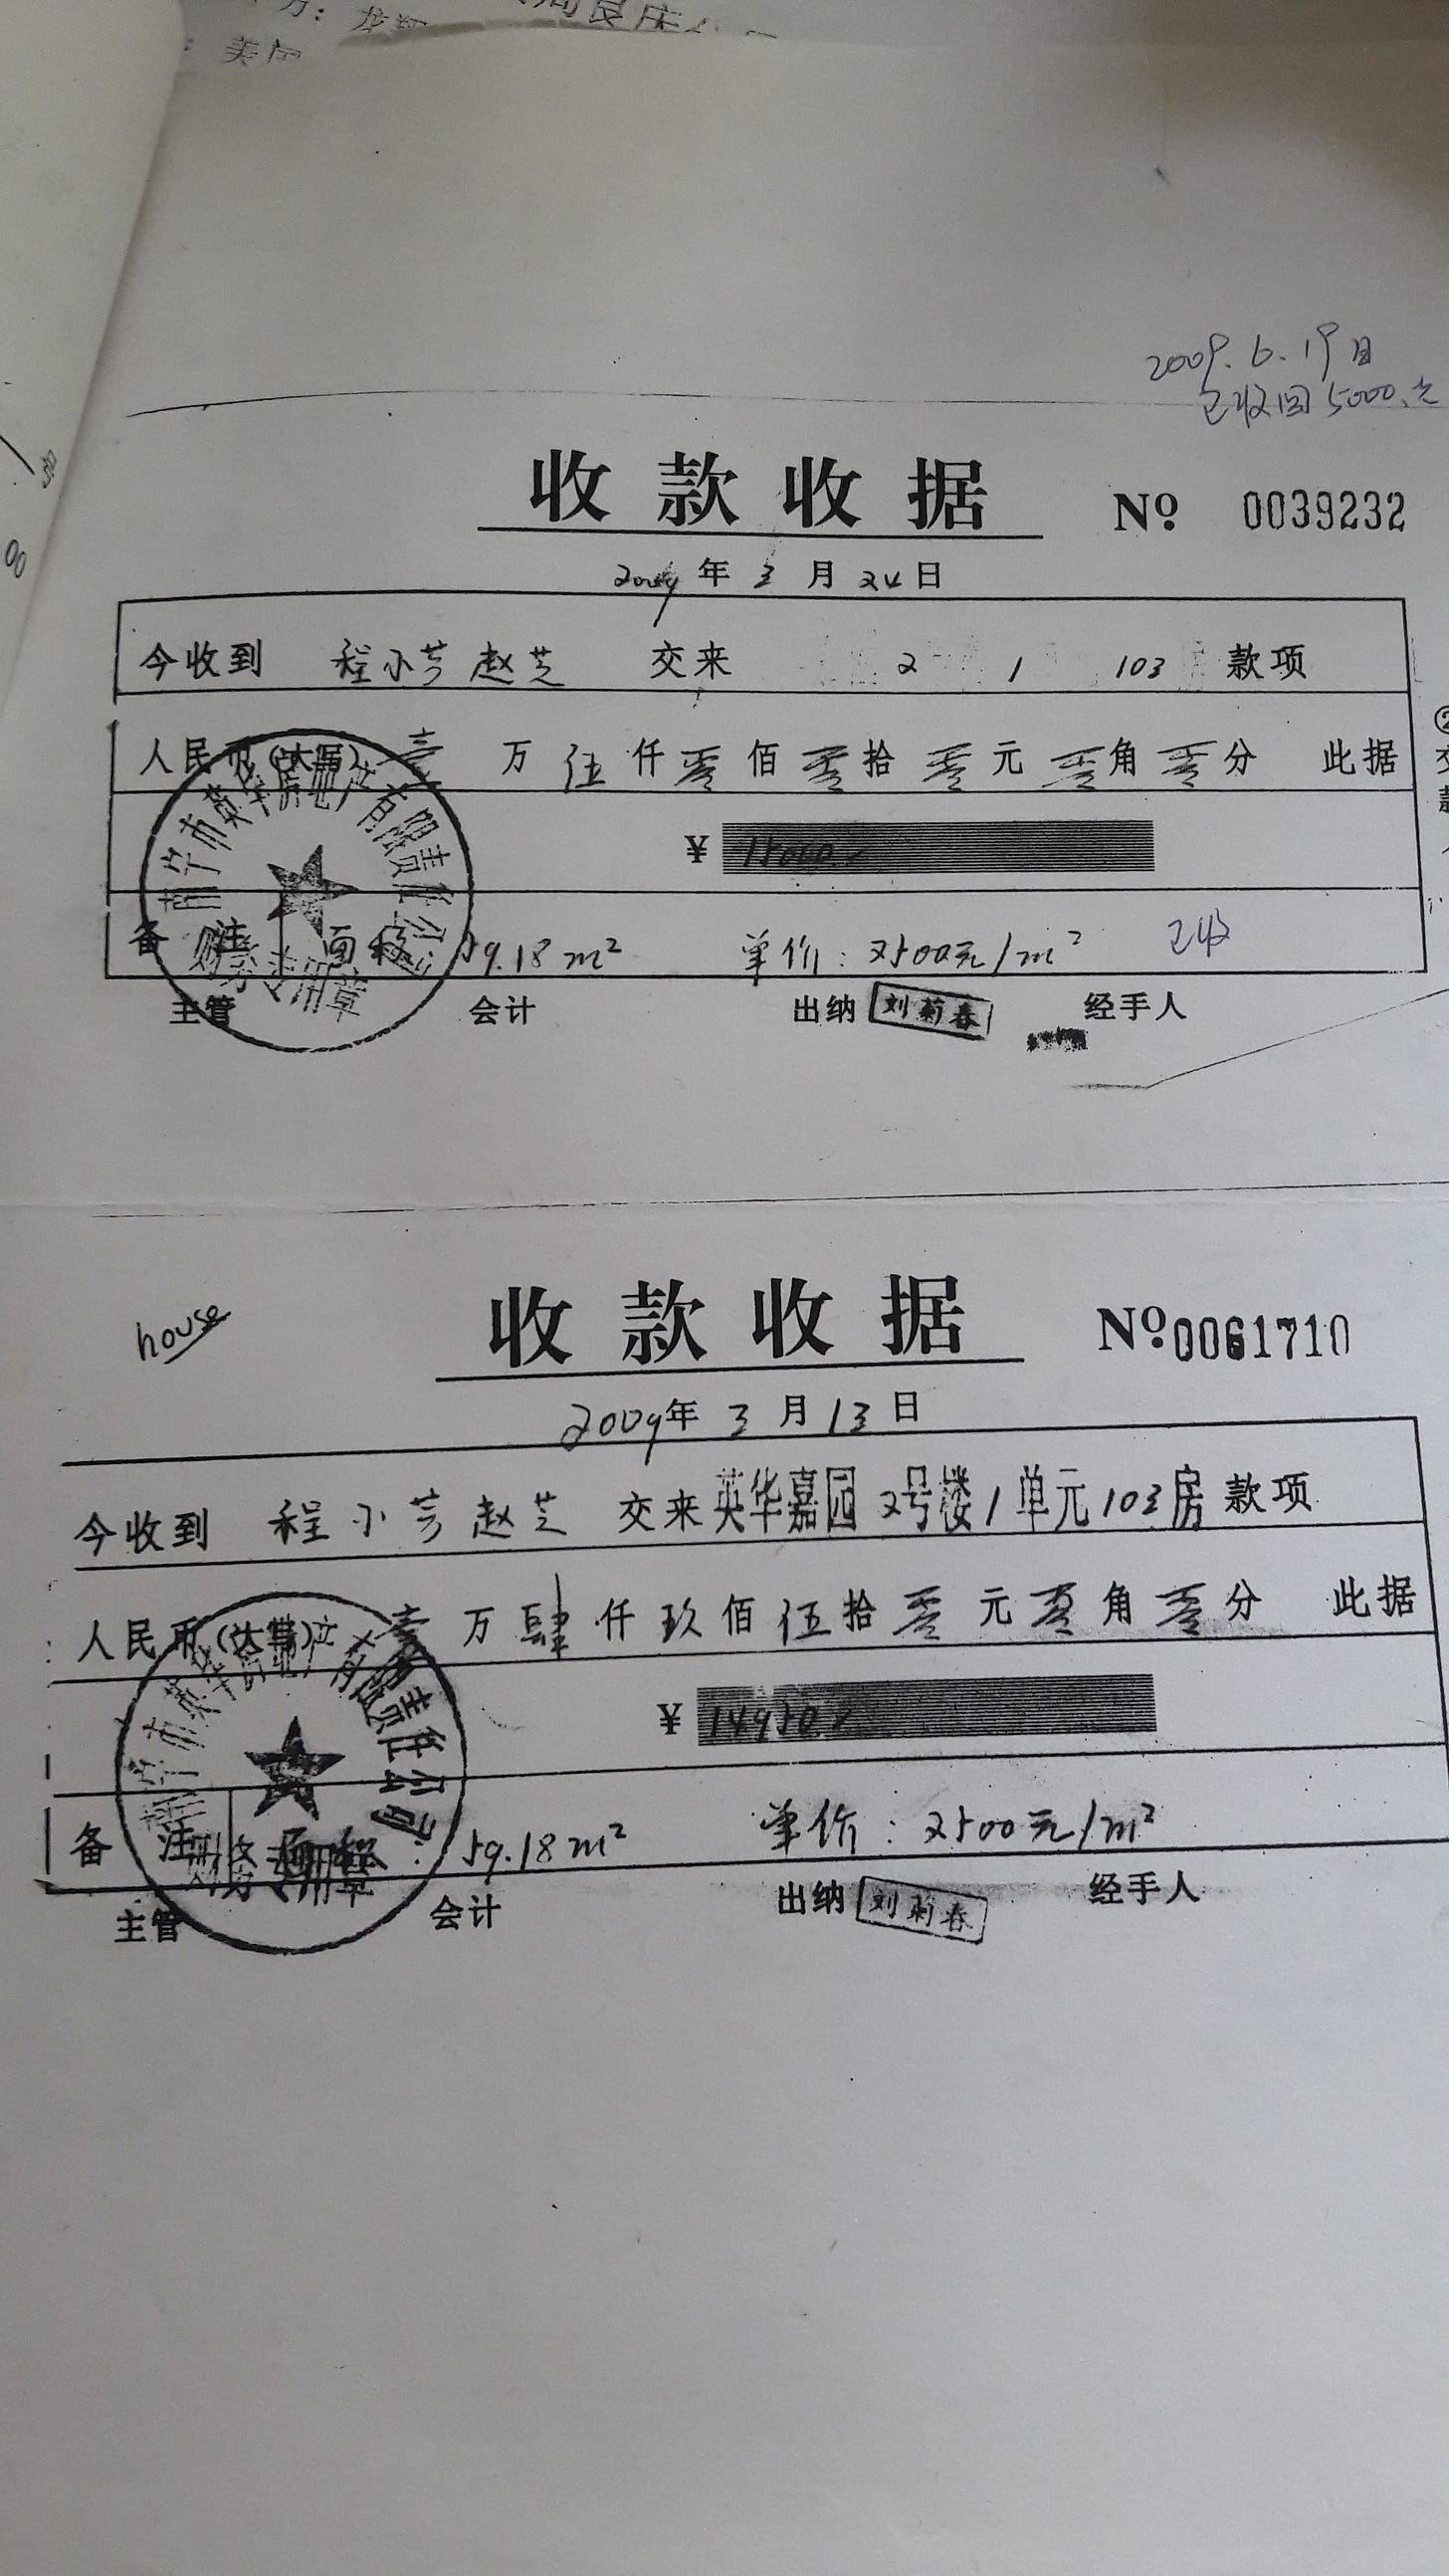 美居
2009.6.19日
已收回5000.元
收款收据 Nº 0039232
2009年3月24日
今收到 程小芳赵芝 交来 2 1 103 款项
人民币(大写)壹万伍仟零佰零拾零元零角零分 此据
¥ 15000
备注 面积 59.18m² 单价:2500元/m² 已收
主管 会计 出纳 刘菊春 经手人
南宁市英华房地产有限责任公司
财务专用章
house
收款收据 Nº 0061710
2009年3月13日
今收到 程小芳赵芝 交来英华嘉园2号楼1单元103房款项
人民币(大写)壹万肆仟玖佰伍拾零元零角零分 此据
¥ 14950
备注 面积:59.18m² 单价:2500元/m²
主管 会计 出纳 刘菊春 经手人
南宁市英华房地产有限责任公司
财务专用章